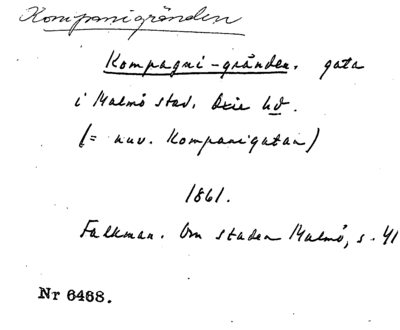 Kompanigränden
Kompagni-gränden. gata
i Malmö stad. Oxie hd.
(= nuv. Kompanigatan)
1861.
Falkman. Om staden Malmö, s. 41
Nr 6468.